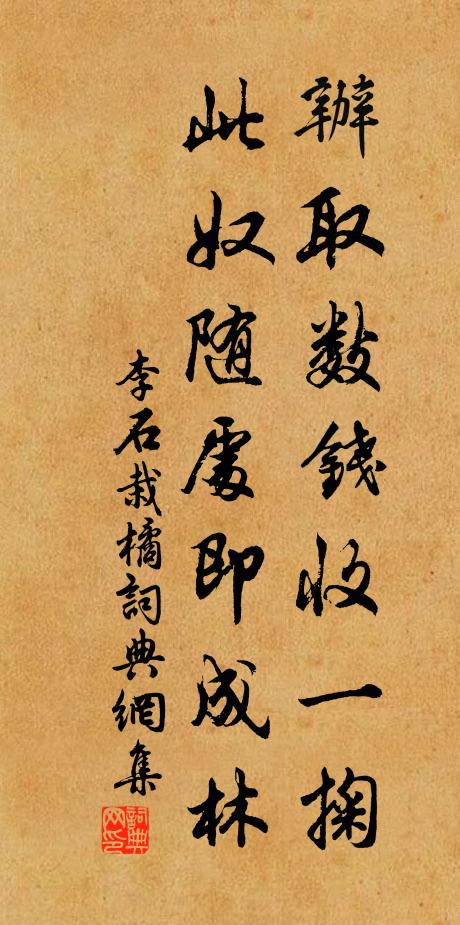 辦取數錢收一掬
此奴随處即成林
李石栽橘詞典網集
詞典網印